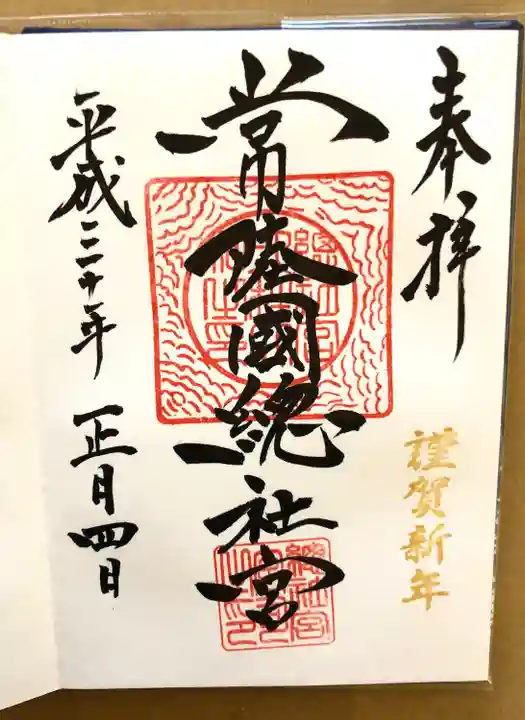 奉拝
謹賀新年
常陸國總社宮
平成三十年 正月四日